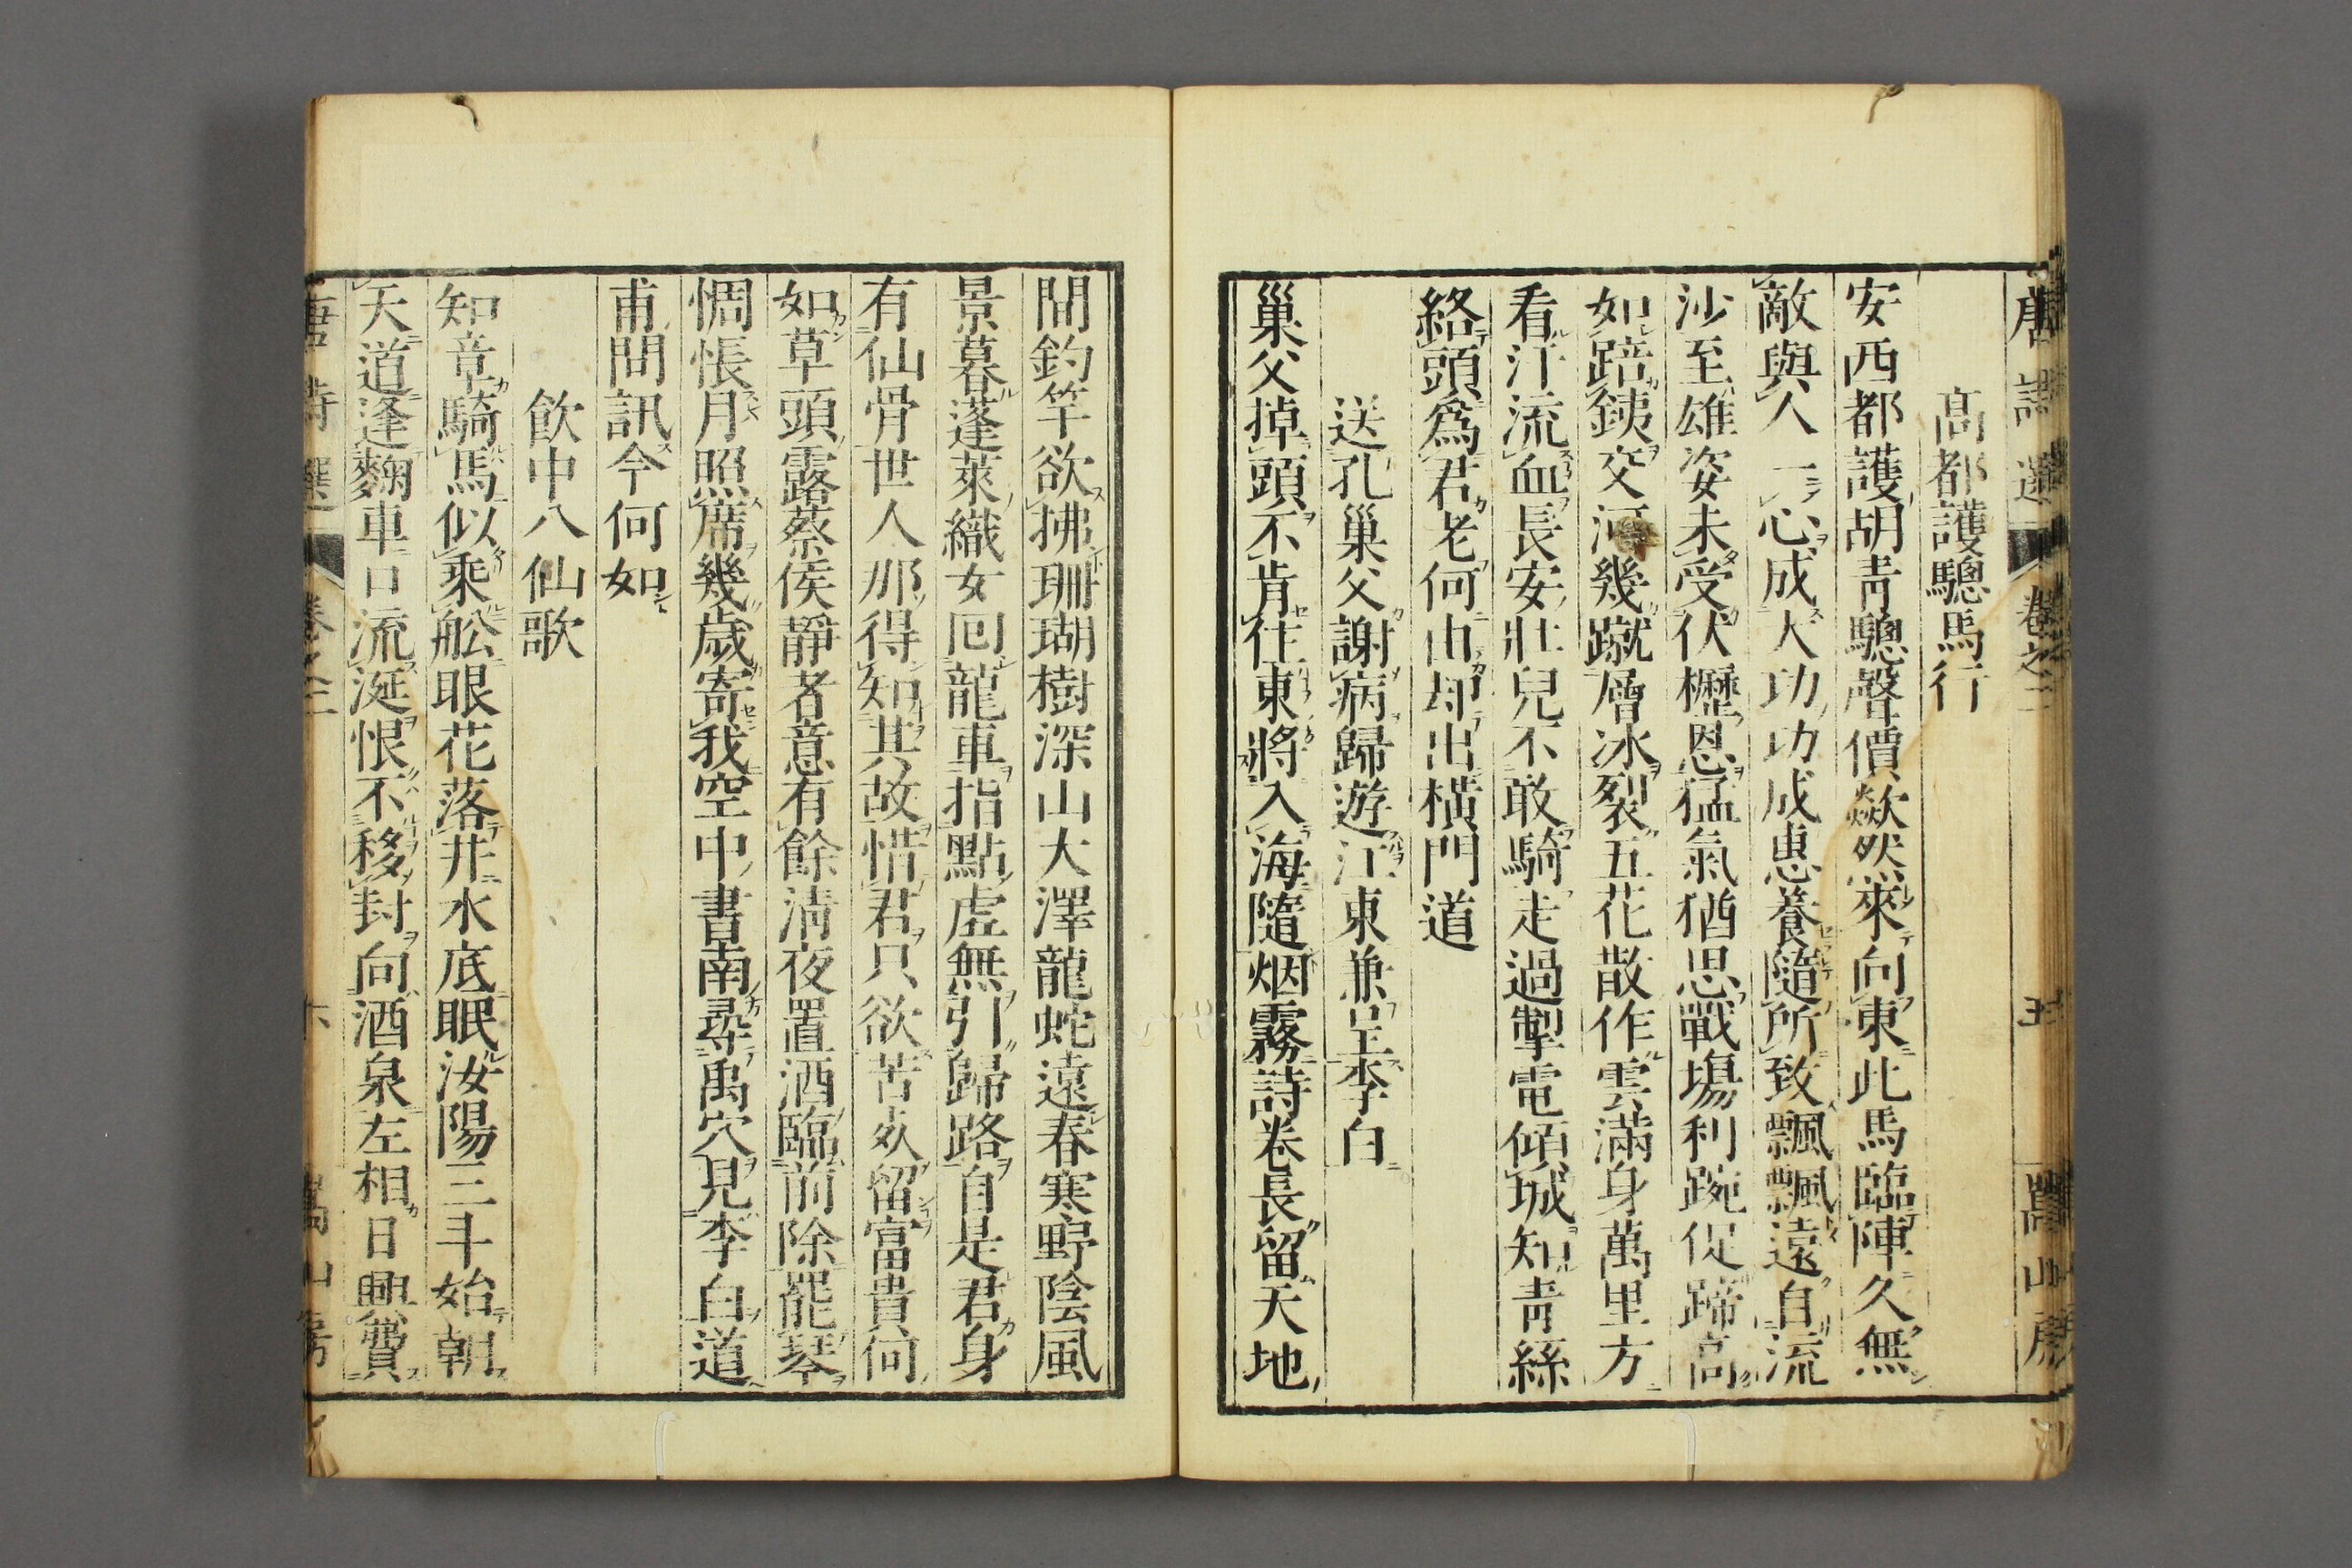 唐詩選 卷之二 五 嵩山房
高都護驄馬行
安西都護胡青驄聲價歘然來向東此馬臨陣久無
敵與人一心成大功功成惠養隨所致飄飄遠自流
沙至雄姿未受伏櫪恩猛氣猶思戰場利踠促蹄高
如踣鐵交河幾蹴層冰裂五花散作雲滿身萬里方
看汗流血長安壯兒不敢騎走過掣電傾城知青絲
絡頭爲君老何由却出橫門道
送孔巢父謝病歸遊江東兼呈李白
巢父掉頭不肯住東將入海隨烟霧詩卷長留天地
間釣竿欲拂珊瑚樹深山大澤龍蛇遠春寒野陰風
景暮蓬萊織女回龍車指點虛無引歸路自是君身
有仙骨世人那得知其故惜君只欲苦死留富貴何
如草頭露蔡侯靜者意有餘淸夜置酒臨前除罷琴
惆悵月照席幾歲寄我空中書南尋禹穴見李白道
甫問訊今何如
飮中八仙歌
知章騎馬似乘舩眼花落井水底眠汝陽三斗始朝
天道逢麴車口流涎恨不移封向酒泉左相日興費
唐詩選 卷之二 六 嵩山房